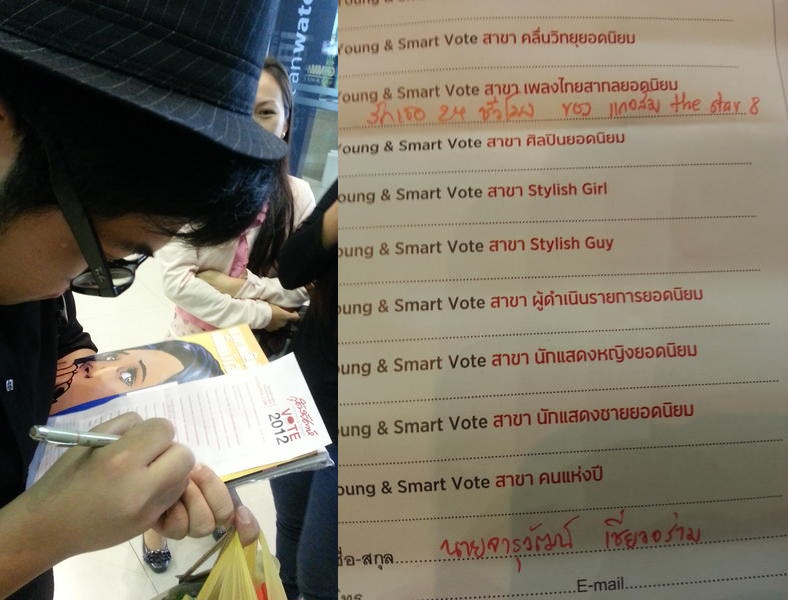 anwatc
VOTE
2012
Young & Smart Vote สาขา คลื่นวิทยุยอดนิยม
Young & Smart Vote สาขา เพลงไทยสากลยอดนิยม
รักเธอ 24 ชั่วโมง ของ แกงส้ม the star 8
Young & Smart Vote สาขา ศิลปินยอดนิยม
oung & Smart Vote สาขา Stylish Girl
oung & Smart Vote สาขา Stylish Guy
oung & Smart Vote สาขา ผู้ดำเนินรายการยอดนิยม
oung & Smart Vote สาขา นักแสดงหญิงยอดนิยม
oung & Smart Vote สาขา นักแสดงชายยอดนิยม
oung & Smart Vote สาขา คนแห่งปี
ชื่อ-สกุล นายจารุวัฒน์ เชี่ยวอร่าม
E-mail